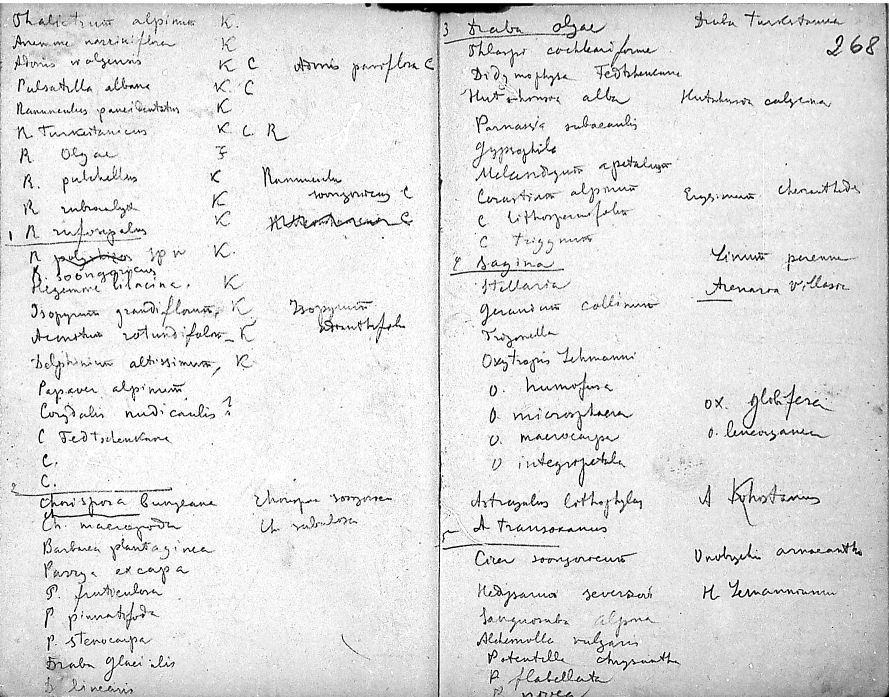 Thalictrum alpinum K.
Anemone narcissiflora K
Adonis wolgensis K C Adonis parviflora C
Pulsatilla albana K C
Ranunculus paucidentatus K
R Turkestanicus K C R
R Olgae F
R. pulchellus K Ranunculus
songoricus C
R rubrocalyx K
1 R rufosepalus K C
R sp n K.
R. soongoricus
Hegemone lilacina. K
Isopyrum grandiflorum, K Isopyrum
Aconitum rotundifolium K
Delphinium altissimum, K
Papaver alpinum
Corydalis nudicaulis?
C Fedtschenkoana
C.
C.
2
Chorispora Bungeana Chorispora songorica
Ch. macropoda Ch sabulosa
Barbarea plantaginea
Parrya excapa
P. fruticulosa
P pinnatifida
P stenocarpa
Draba glacialis
D linearis
268
3 Draba olgae Draba Turkestanica
Thlaspi cochleariforme
Didymophysa Fedtschenkoana
Hutchinsia alba Hutchinsia calycina
Parnassia subacaulis
Gypsophila
Melandryum apetalum
Cerastium alpinum Erysimum cheiranthoides
C lithospermifolium
C trigynum
4 Sagina Linum perenne
Stellaria Arenaria Villarsii
Geranium collinum
Trigonella
Oxytropis Lehmanni
O. humifusa
O. microsphaera Ox. globifera
O. macrocarpa O. leucocyanea
O integripetala
Astragalus lithophylus A Kohistanus
5 A transoxanus
Cicer soongoricum Onobrychis arnacantha
Hedysarum severzovi H Lemannianum
Sanguisorba alpina
Alchemilla vulgaris
Potentilla chrysantha
P flabellata
P nivea